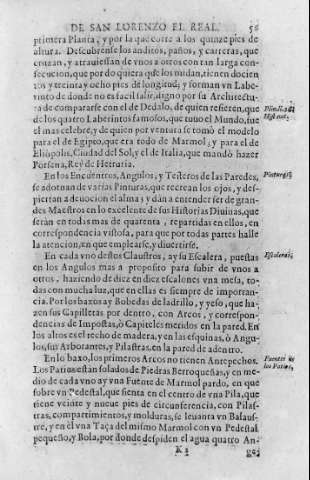 DE SAN LORENZO EL REAL. 56
primera Planta, y por la que corre a los quinze pies de
altura. Descubrense los anditos, paños, y carreras, que
cruzan, y atrauiessan de vnos a otros con tan larga con-
secucion, que por do quiera que los midan, tienen docien
tos y treinta y ocho pies de longitud; y forman vn Labe-
rinto de donde no es facil salir, digno por su Architectu-
ra de compararse con el de Dedalo, de quien refieren, que
de los quatro Laberintos famosos, que tuuo el Mundo, fue
el mas celebre, y de quien por ventura se tomò el modelo
para el de Egipto, que era todo de Marmol; y para el de
Eliopolis, Ciudad del Sol, y el de Italia, que mandò hazer
Porsena, Rey de Hetruria.
Pinturas.
En los Encuentros, Angulos, y Testeros de las Paredes,
se adornan de varias Pinturas, que recrean los ojos, y des-
piertan a deuocion el alma, y dàn a entender ser de gran-
des Maestros en lo excelente de sus Historias Diuinas, que
seràn en todas mas de quarenta, repartidas en ellos, en
correspondencia vistosa, para que por todas partes halle
la atencion, en que emplearse, y diuertirse.
Escaleras.
En cada vno destos Claustros, ay su Escalera, puestas
en los Angulos mas a proposito para subir de vnos a
otros, haziendo de diez en diez escalones vna mesa, to-
das con mucha luz, que en ellas es siempre de importan-
cia. Por los baxos ay Bobedas de ladrillo, y yeso, que ha-
zen sus Capilletas por dentro, con Arcos, y correspon-
dencias de Impostas, ò Capiteles metidos en la pared. En
los altos es el techo de madera, y en las esquinas, ò Angu-
los, sus Arborantes, y Pilastras en la pared de adentro.
Fuentes de
los Patios.
En lo baxo, los primeros Arcos no tienen Antepechos.
Los Patios estàn solados de Piedras Berroqueñas, y en me-
dio de cada vno ay vna Fuente de Marmol pardo, en que
sobre vn Pedestal, que sienta en el centro de vna Pila, que
tiene veinte y nueue pies de circunferencia, con Pilas-
tras, compartimientos, y molduras, se leuanta vn Balaus-
tre, y en èl vna Taça del mismo Marmol con vn Pedestal
pequeño, y Bola, por donde despiden el agua quatro An-
K 2 ge-